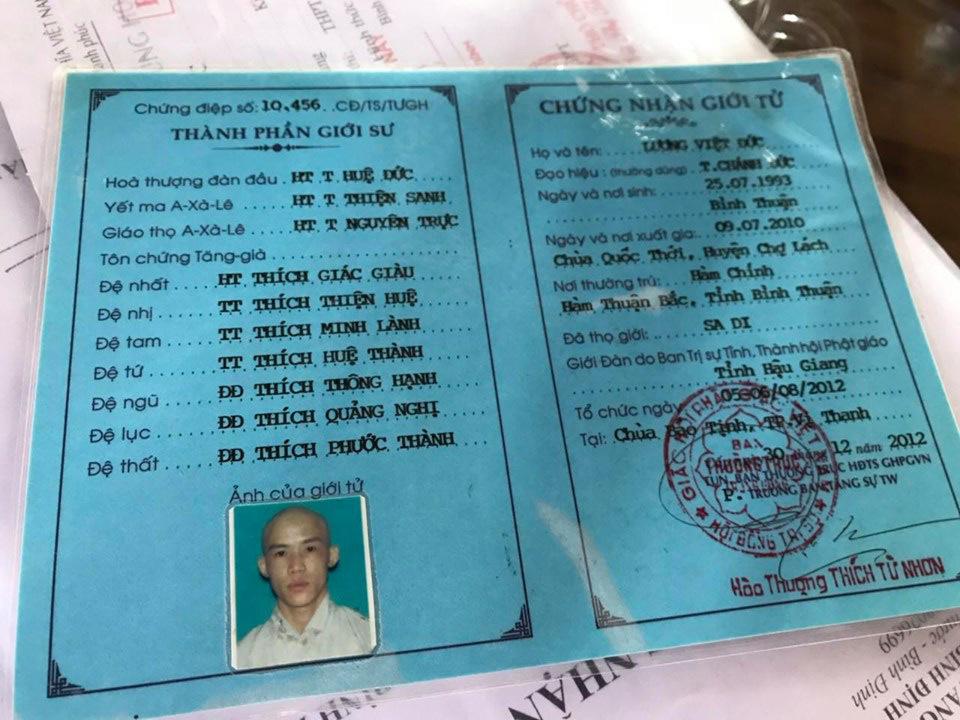 Chứng điệp số: 10.456. .CĐ/TS/TƯGH
THÀNH PHẦN GIỚI SƯ
Hoà thượng đàn đầu . HT T HUỆ ĐỨC
Yết ma A-Xà-Lê . . . . HT T THIỆN SANH
Giáo thọ A-Xà-Lê . . . . . HT T NGUYÊN TRỰC
Tôn chứng Tăng-già
Đệ nhất . . . . HT THÍCH GIÁC GIÀU
Đệ nhị . . . . . TT THÍCH THIỆN HUỆ
Đệ tam . . . . TT THÍCH MINH LÀNH
Đệ tứ . . . . . TT THÍCH HUỆ THÀNH
Đệ ngũ . . . . ĐĐ THÍCH THÔNG HẠNH
Đệ lục . . . . . ĐĐ THÍCH QUẢNG NGHỊ
Đệ thất . . . . ĐĐ THÍCH PHƯỚC THÀNH
Ảnh của giới tử
CHỨNG NHẬN GIỚI TỬ
Họ và tên: . . . . LƯƠNG VIỆT ĐỨC
Đạo hiệu : (thường dùng) . T.CHÁNH ĐỨC
Ngày và nơi sinh: . . . 25.07.1993
Bình Thuận
Ngày và nơi xuất gia: 09.07.2010
Chùa Quốc Thới, Huyện Chợ Lách
Nơi thường trú: Hàm Chính
Hàm Thuận Bắc, Tỉnh Bình Thuận
Đã thọ giới: SA DI
Giới Đàn do Ban Trị sự Tỉnh, Thành hội Phật giáo
Tỉnh Hậu Giang
Tổ chức ngày 05-06/08/2012
Tại: Chùa Bảo Tịnh, TP.Vị Thanh
30 12 năm 2012
TUN. BAN THƯỜNG TRỰC HĐTS GHPGVN
P. TRƯỞNG BAN TĂNG SỰ TW
BAN
THƯỜNG TRỰC
Hòa Thượng THÍCH TỪ NHƠN